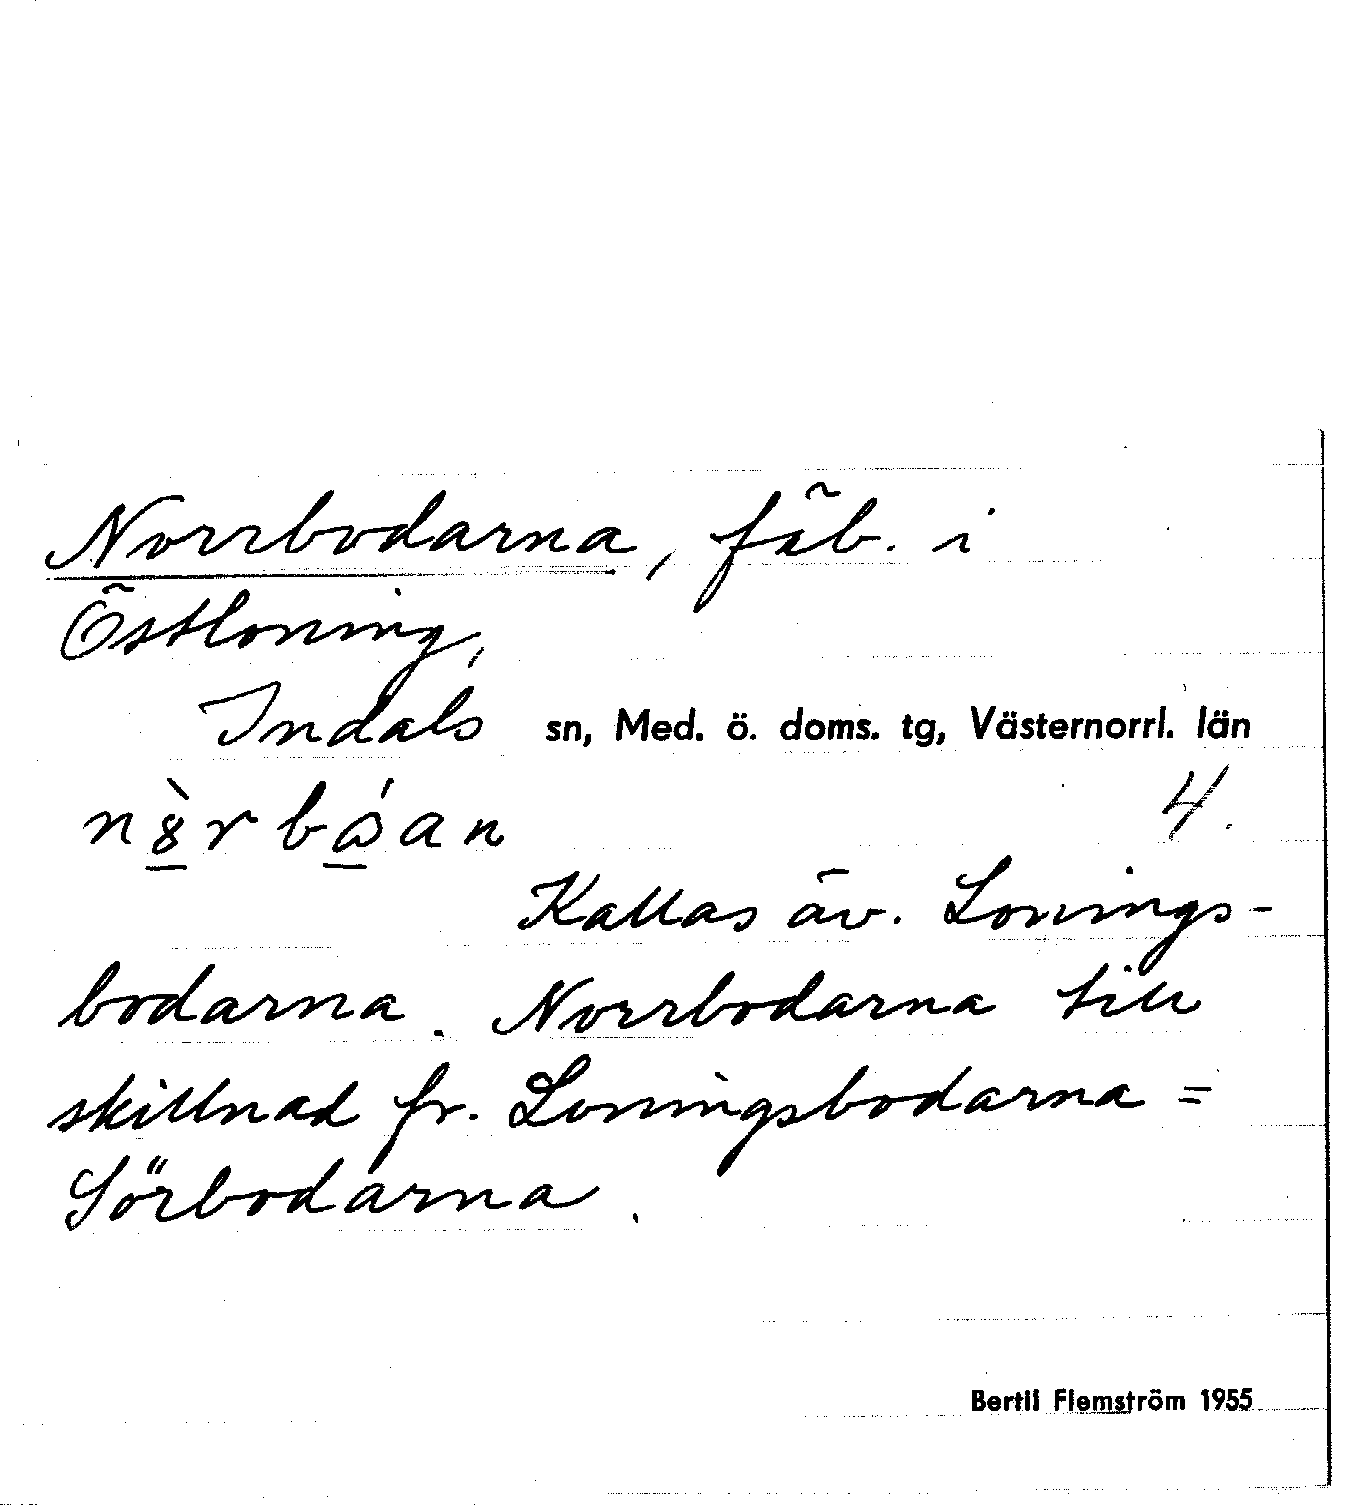 Norrbodarna, fäb. i
Östloning,
Indals sn, Med. ö. doms. tg, Västernorrl. län
4.
Kallas äv. Lonings-
bodarna. Norrbodarna till
skillnad fr. Loningsbodarna =
Sörbodarna.
Bertil Flemström 1955